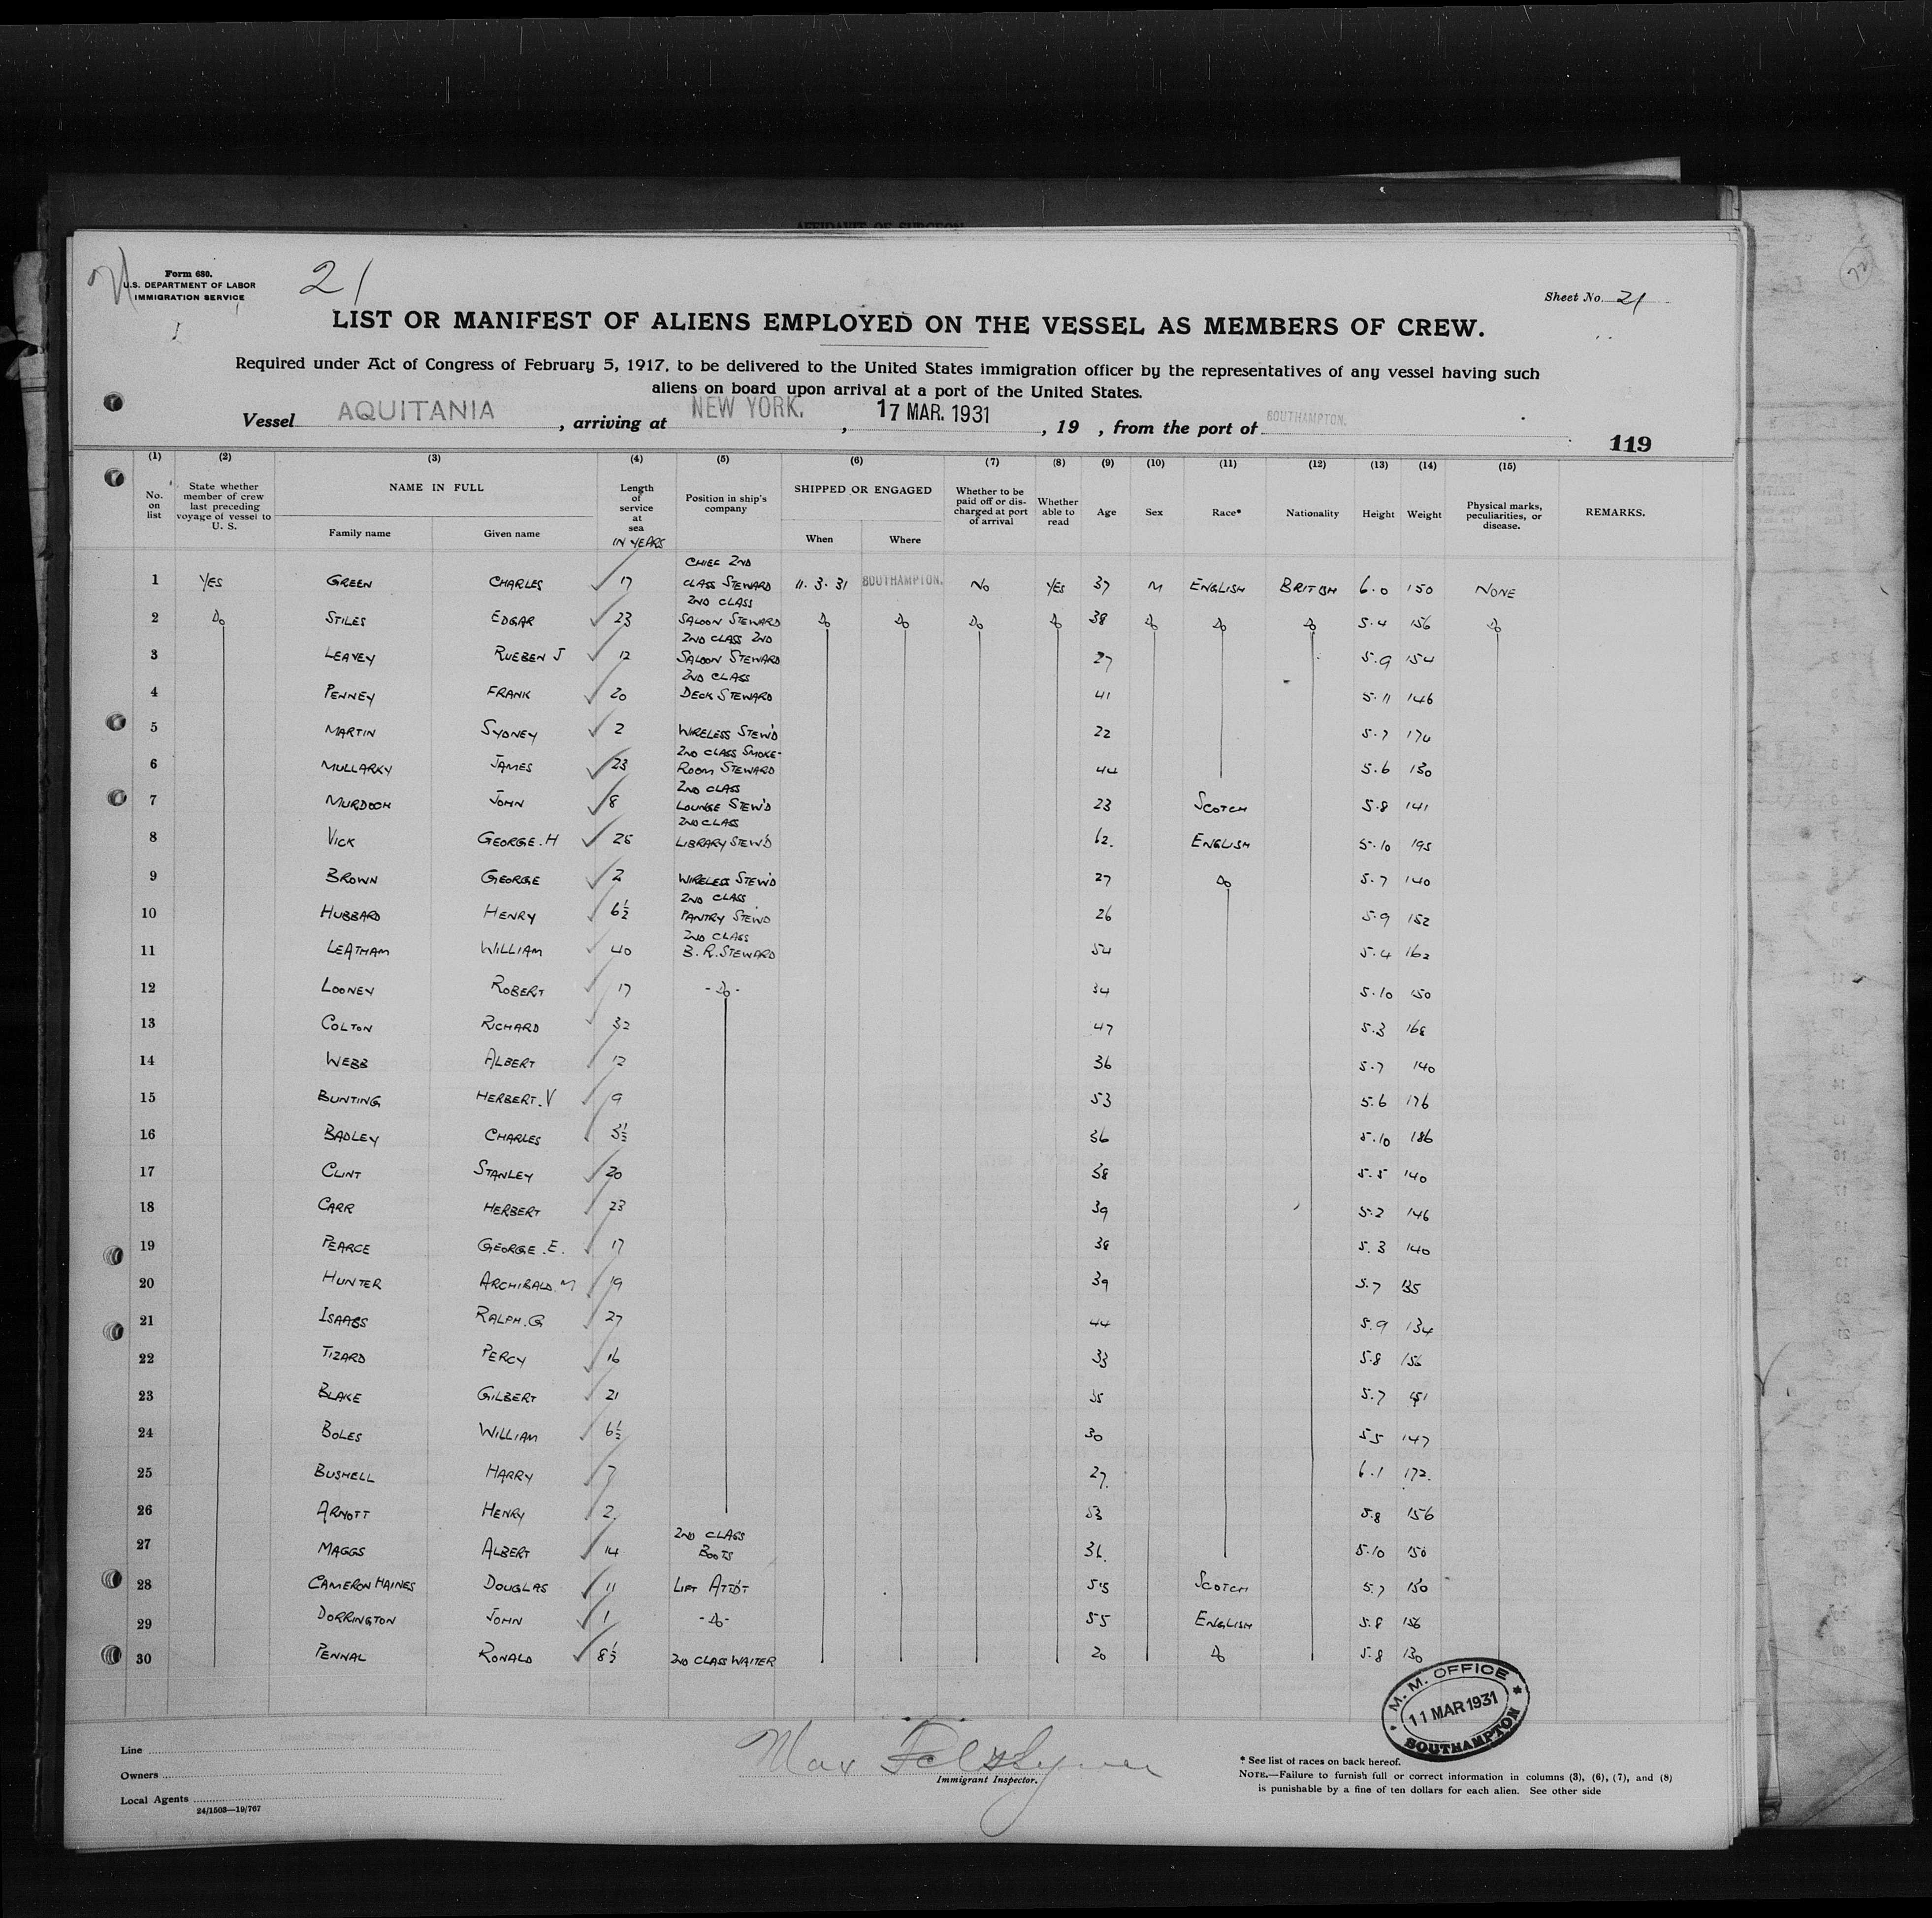 AFFIDAVIT OF SURGEON
21
Form 680.
U.S. DEPARTMENT OF LABOR
IMMIGRATION SERVICE
Sheet No. 21
LIST OR MANIFEST OF ALIENS EMPLOYED ON THE VESSEL AS MEMBERS OF CREW.
Required under Act of Congress of February 5, 1917, to be delivered to the United States immigration officer by the representatives of any vessel having such
aliens on board upon arrival at a port of the United States.
Vessel AQUITANIA, arriving at NEW YORK., 17 MAR. 1931, 19 , from the port of SOUTHAMPTON.
119
(1) (2) (3) (4) (5) (6) (7) (8) (9) (10) (11) (12) (13) (14) (15)
No. on list
State whether member of crew last preceding voyage of vessel to U. S.
NAME IN FULL
Family name
Given name
Length of service at sea
IN YEARS
Position in ship's company
SHIPPED OR ENGAGED
When
Where
Whether to be paid off or discharged at port of arrival
Whether able to read
Age
Sex
Race*
Nationality
Height
Weight
Physical marks, peculiarities, or disease.
REMARKS.
1 YES GREEN CHARLES 17 CHIEF 2ND CLASS STEWARD 11.3.31 SOUTHAMPTON. NO YES 37 M ENGLISH BRITISH 6.0 150 NONE
2 Do STILES EDGAR 23 2ND CLASS SALOON STEWARD Do Do Do Do 38 Do Do Do 5.4 156 Do
3 LEAVEY RUEBEN J 12 2ND CLASS 2ND SALOON STEWARD 27 5.9 154
4 PENNEY FRANK 20 2ND CLASS DECK STEWARD 41 5.11 146
5 MARTIN SYDNEY 2 WIRELESS STEW'D 22 5.7 170
6 MULLARKY JAMES 23 2ND CLASS SMOKE-ROOM STEWARD 44 5.6 130
7 MURDOCH JOHN 8 2ND CLASS LOUNGE STEW'D 23 SCOTCH 5.8 141
8 VICK GEORGE.H 25 2ND CLASS LIBRARY STEW'D 62. ENGLISH 5.10 195
9 BROWN GEORGE 2 WIRELESS STEW'D 27 Do 5.7 140
10 HUBBARD HENRY 6½ 2ND CLASS PANTRY STEW'D 26 5.9 152
11 LEATHAM WILLIAM 40 2ND CLASS B.R. STEWARD 54 5.4 162
12 LOONEY ROBERT 17 -Do- 34 5.10 150
13 COLTON RICHARD 32 47 5.3 168
14 WEBB ALBERT 12 36 5.7 140
15 BUNTING HERBERT.V 9 53 5.6 176
16 BADLEY CHARLES 3½ 36 5.10 186
17 CLINT STANLEY 20 38 5.5 140
18 CARR HERBERT 23 39 5.2 146
19 PEARCE GEORGE.E. 17 38 5.3 140
20 HUNTER ARCHIBALD M 19 39 5.7 135
21 ISAACS RALPH.G 27 44 5.9 134
22 TIZARD PERCY 16 33 5.8 156
23 BLAKE GILBERT 21 35 5.7 151
24 BOLES WILLIAM 6½ 30 5.5 147
25 BUSHELL HARRY 7 27. 6.1 172.
26 ARNOTT HENRY 2 53 5.8 156
27 MAGGS ALBERT 14 2ND CLASS BOOTS 36. 5.10 150
28 CAMERON HAINES DOUGLAS 11 LIFT ATTD'T 55 SCOTCH 5.7 150
29 DORRINGTON JOHN 1 -Do- 55 ENGLISH 5.8 156
30 PENNAL RONALD 8½ 2ND CLASS WAITER 20 Do 5.8 130
M. M. OFFICE
11 MAR 1931
SOUTHAMPTON
Line
Owners
Local Agents
24/1503—19/767
Max
Immigrant Inspector.
* See list of races on back hereof.
NOTE.—Failure to furnish full or correct information in columns (3), (6), (7), and (8)
is punishable by a fine of ten dollars for each alien. See other side